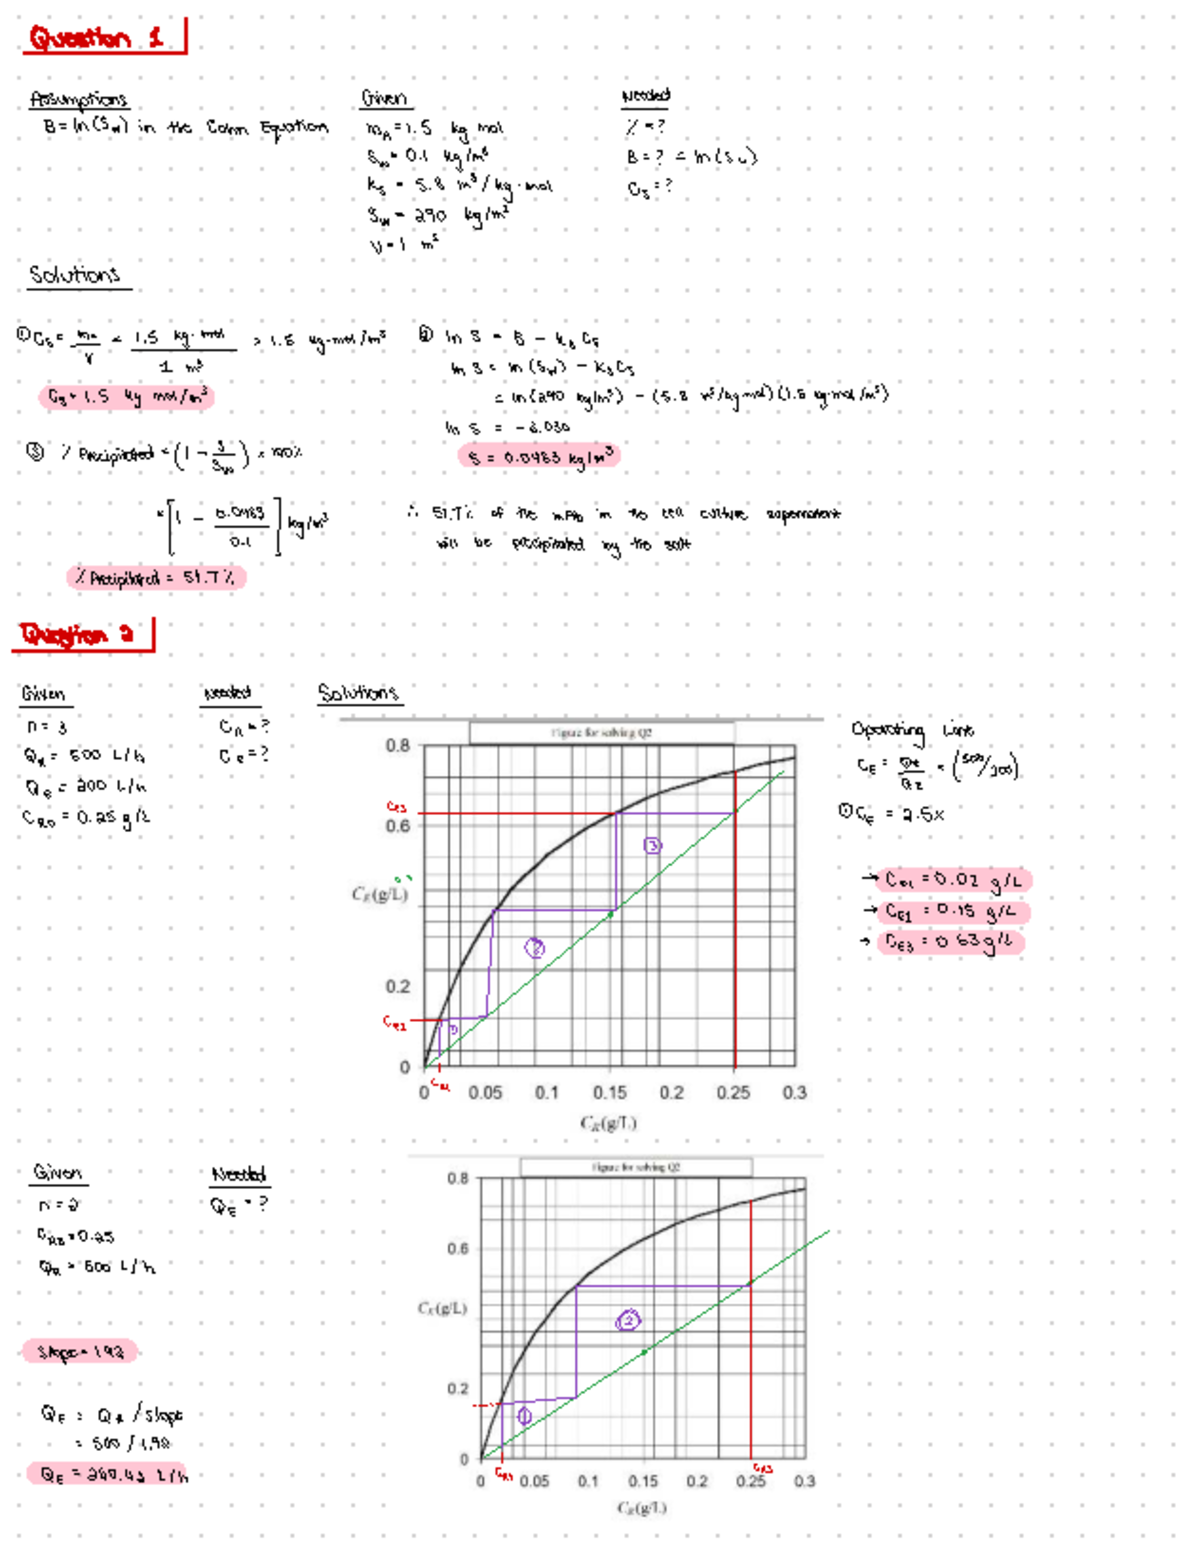 Question 1
Assumptions
B = ln(Sw) in the Cohn Equation
Given
mA = 1.5 kg mol
Sw = 0.1 kg/m³
ks = 5.8 m³/kg·mol
Sw = 290 kg/m³
V = 1 m³
Needed
% = ?
B = ? = ln(Sw)
Cs = ?
Solutions
① Cs = mA/V = 1.5 kg·mol / 1 m³ = 1.5 kg·mol/m³
Cs = 1.5 kg mol/m³
② ln S = B - ks Cs
ln S = ln(Sw) - ks Cs
= ln(290 kg/m³) - (5.8 m³/kg·mol)(1.5 kg·mol/m³)
ln S = -3.030
S = 0.0483 kg/m³
③ % Precipitated = (1 - S/Sw) × 100%
= [1 - 0.0483/0.1] kg/m³
% Precipitated = 51.7%
∴ 51.7% of the mAb in the cell culture supernatant
will be precipitated by the salt
Question 2
Given
n = 3
QR = 500 L/h
QE = 200 L/h
CR0 = 0.25 g/L
Needed
CR = ?
CE = ?
Solutions
Figure for solving Q2
0.8
CE3
0.6
CE(g/L)
③
②
0.2
0
0 0.05 0.1 0.15 0.2 0.25 0.3
CR(g/L)
Operating Line
= (500/200)
① CE = 2.5x
→ CR1 = 0.02 g/L
→ CE1 = 0.15 g/L
→ CE3 = 0.63 g/L
Given
n = 2
CR3 = 0.25
QR = 500 L/h
Needed
QE = ?
slope = 1.92
QE = QR / slope
QE = 260.43 L/h
Figure for solving Q2
0.8
0.6
CE(g/L)
②
0.2
①
0
CR1
CR3
0 0.05 0.1 0.15 0.2 0.25 0.3
CR(g/L)